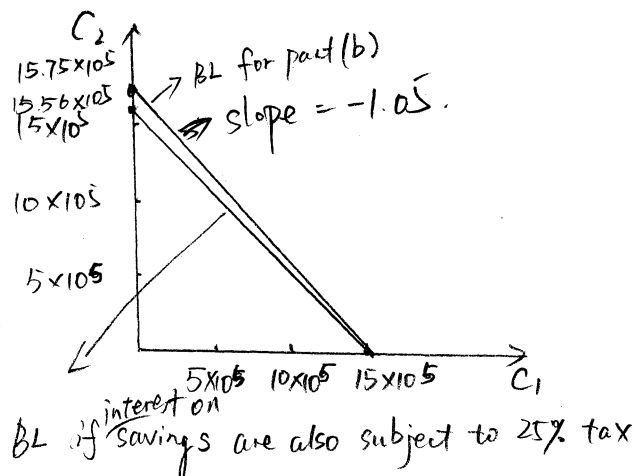 C₂
15.75×10⁵
15.56×10⁵
15×10⁵
10×10⁵
5×10⁵
BL for part (b)
slope = -1.05.
5×10⁵ 10×10⁵ 15×10⁵
C₁
BL if interest on savings are also subject to 25% tax